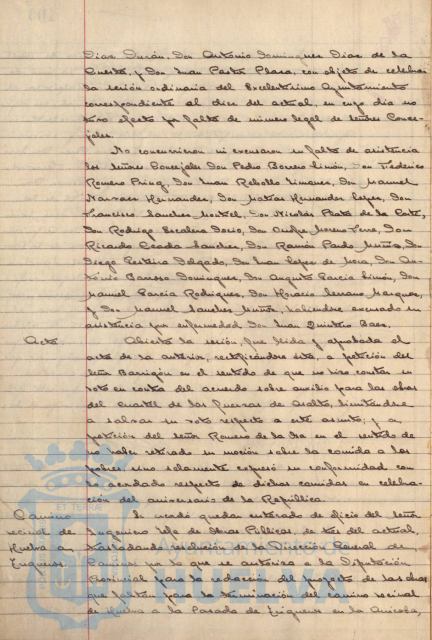 Díaz Durán, Don Antonio Dominguez Díaz de la
Cuesta, y Don Juan Pastor Plaza, con objeto de celebrar
la sesión ordinaria del Excelentísimo Ayuntamiento
correspondiente al dies del actual, en cuyo dia no
tuvo efecto por falta de número legal de señores Conce-
jales.
No concurrieron ni excusaron su falta de asistencia
los señores Concejales Don Pedro Borrero Limón, Don Federico
Romero Don Juan Rebollo Jimenez, Don Manuel
Narvaez Hernandez, Don Matias Hernandez Lopez, Don
Francisco Sanchez Don Nicolás de la
Don Rodrigo Escalera Don Andrés Moreno Don
Ricardo Sanchez, Don Ramón Pardo Don
Diego Delgado, Don Juan Lopez de Don An-
tonio Barroso Dominguez, Don Augusto Garcia Limón, Don
Manuel Garcia Rodriguez, Don Horacio Serrano Marquez,
y Don Manuel Sanchez habiendo excusado su
asistencia por enfermedad Don Juan Quintero Baez.
Acta Abierta la sesión, fue leida y aprobada el
acta de la anterior, rectificándose ésta, a petición del
señor Barrigón en el sentido de que no hizo contar su
voto en contra del acuerdo sobre auxilio para las obras
del cuartel de las fuerzas de Asalto, limitándose
a salvar su voto respecto a este asunto; y a
petición del señor Romero de la en el sentido de
no haber retirado su moción sobre la comida a los
pobres, sino solamente expresó su conformidad con
lo acordado respecto de dichas comidas en celebra-
ción del aniversario de la República.
Camino Se acordó quedar enterado de oficio del señor
vecinal de Ingeniero Jefe de Obras Públicas, de tres del actual,
Huelva a trasladando resolución de la Dirección General de
Caminos por la que se autoriza a la Diputación
Provincial para la redacción del proyecto de las obras
que faltan para la terminación del camino vecinal
de Huelva a la Pasada de en la
ET TERRAE
Ayuntamiento de
HUELVA